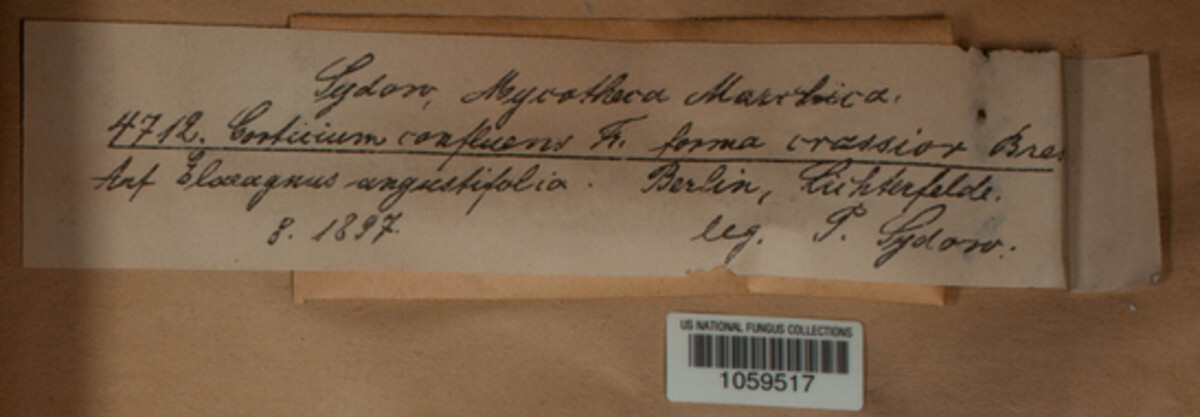 Sydow, Mycotheca Marchica.
4712. Corticium confluens Fr. forma crassior Bres
Auf Elaeagnus angustifolia. Berlin, Lichterfelde.
8. 1897. leg. P. Sydow.
US NATIONAL FUNGUS COLLECTIONS
1059517